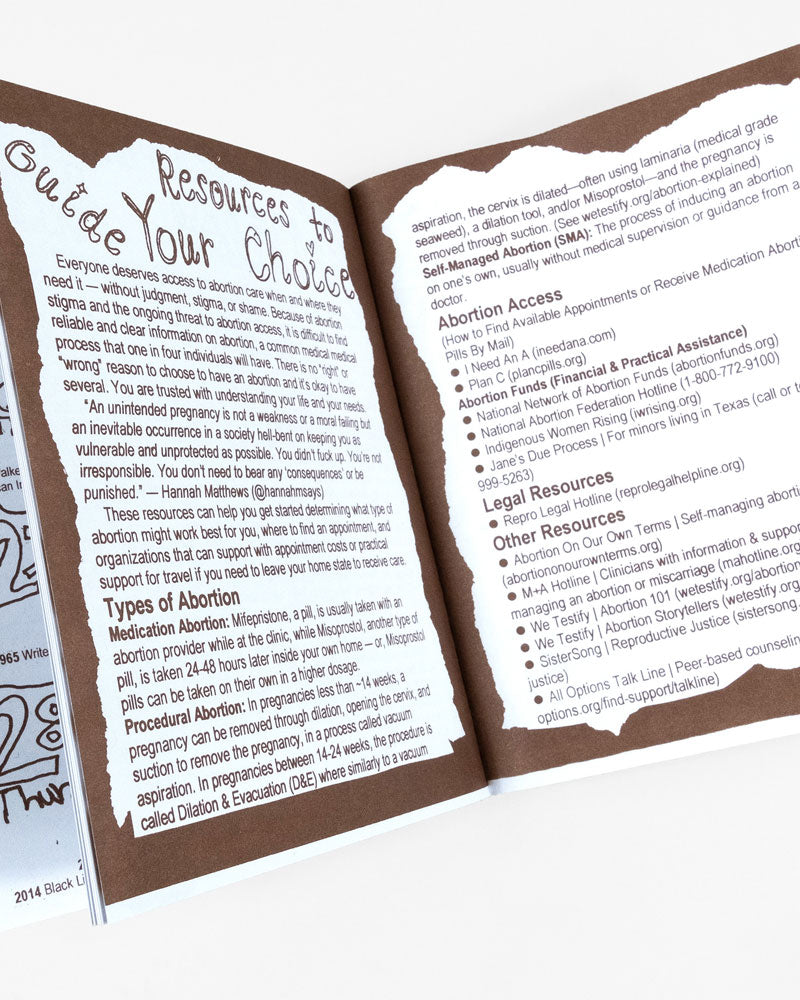 Resources to
Guide Your Choice
Everyone deserves access to abortion care when and where they
need it — without judgment, stigma, or shame. Because of abortion
stigma and the ongoing threat to abortion access, it is difficult to find
reliable and clear information on abortion, a common medical medical
process that one in four individuals will have. There is no "right" or
"wrong" reason to choose to have an abortion and it's okay to have
several. You are trusted with understanding your life and your needs.
"An unintended pregnancy is not a weakness or a moral failing but
an inevitable occurrence in a society hell-bent on keeping you as
vulnerable and unprotected as possible. You didn't fuck up. You're not
irresponsible. You don't need to bear any 'consequences' or be
punished." — Hannah Matthews (@hannahmsays)
These resources can help you get started determining what type of
abortion might work best for you, where to find an appointment, and
organizations that can support with appointment costs or practical
support for travel if you need to leave your home state to receive care.
Types of Abortion
Medication Abortion: Mifepristone, a pill, is usually taken with an
abortion provider while at the clinic, while Misoprostol, another type of
pill, is taken 24-48 hours later inside your own home — or, Misoprostol
pills can be taken on their own in a higher dosage.
Procedural Abortion: In pregnancies less than ~14 weeks, a
pregnancy can be removed through dilation, opening the cervix, and
suction to remove the pregnancy, in a process called vacuum
aspiration. In pregnancies between 14-24 weeks, the procedure is
called Dilation & Evacuation (D&E) where similarly to a vacuum
aspiration, the cervix is dilated—often using laminaria (medical grade
seaweed), a dilation tool, and/or Misoprostol—and the pregnancy is
removed through suction. (See wetestify.org/abortion-explained)
Self-Managed Abortion (SMA): The process of inducing an abortion
on one's own, usually without medical supervision or guidance from a
doctor.
Abortion Access
(How to Find Available Appointments or Receive Medication Aborti
Pills By Mail)
● I Need An A (ineedana.com)
● Plan C (plancpills.org)
Abortion Funds (Financial & Practical Assistance)
● National Network of Abortion Funds (abortionfunds.org)
● National Abortion Federation Hotline (1-800-772-9100)
● Indigenous Women Rising (iwrising.org)
● Jane's Due Process | For minors living in Texas (call or t
999-5263)
Legal Resources
● Repro Legal Hotline (reprolegalhelpline.org)
Other Resources
● Abortion On Our Own Terms | Self-managing aborti
(abortiononourownterms.org)
● M+A Hotline | Clinicians with information & suppo
managing an abortion or miscarriage (mahotline.org
● We Testify | Abortion 101 (wetestify.org/abortion
● We Testify | Abortion Storytellers (wetestify.org
● SisterSong | Reproductive Justice (sistersong.
justice)
● All Options Talk Line | Peer-based counselin
options.org/find-support/talkline)
965 Write
28
Thur
2014 Black Li